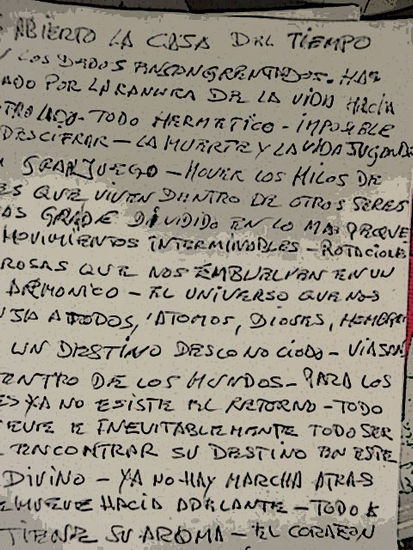 ABIERTO LA CASA DEL TIEMPO
LOS DADOS ENSANGRENTADOS. HAS
ADO POR LA RANURA DE LA VIDA HACIA
TRO LADO - TODO HERMETICO - IMPOSIBLE
DESCIFRAR - LA MUERTE Y LA VIDA JUGANDO
GRAN JUEGO - MOVER LOS HILOS DE
ES QUE VIVEN DENTRO DE OTROS SERES
AS GRANDE DIVIDIDO EN LO MAS PEQUE
MOVIMIENTOS INTERMINABLES - ROTACIONE
ROSAS QUE NOS EMBUELVEN EN UN
ARMONICO - EL UNIVERSO QUE NOS
UJA A TODOS, ATOMOS, DIOSES, HOMBRE
UN DESTINO DESCONOCIDO - VIAJAN
ENTRO DE LOS MUNDOS - PARA LOS
ES YA NO ESISTE EL RETORNO - TODO
EVE E INEVITABLEMENTE TODO SER
ENCONTRAR SU DESTINO EN ESTE
DIVINO - YA NO HAY MARCHA ATRAS
E MUEVE HACIA ADELANTE - TODO
TIENE SU AROMA - EL CORAZON